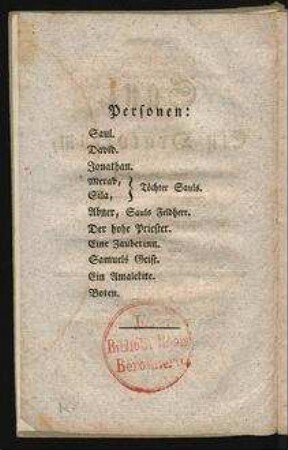 Personen:
Saul.
David.
Jonathan.
Merab, } Töchter Sauls.
Sila,
Abner, Sauls Feldherr.
Der hohe Priester.
Eine Zauberinn.
Samuels Geist.
Ein Amalekite.
Boten.